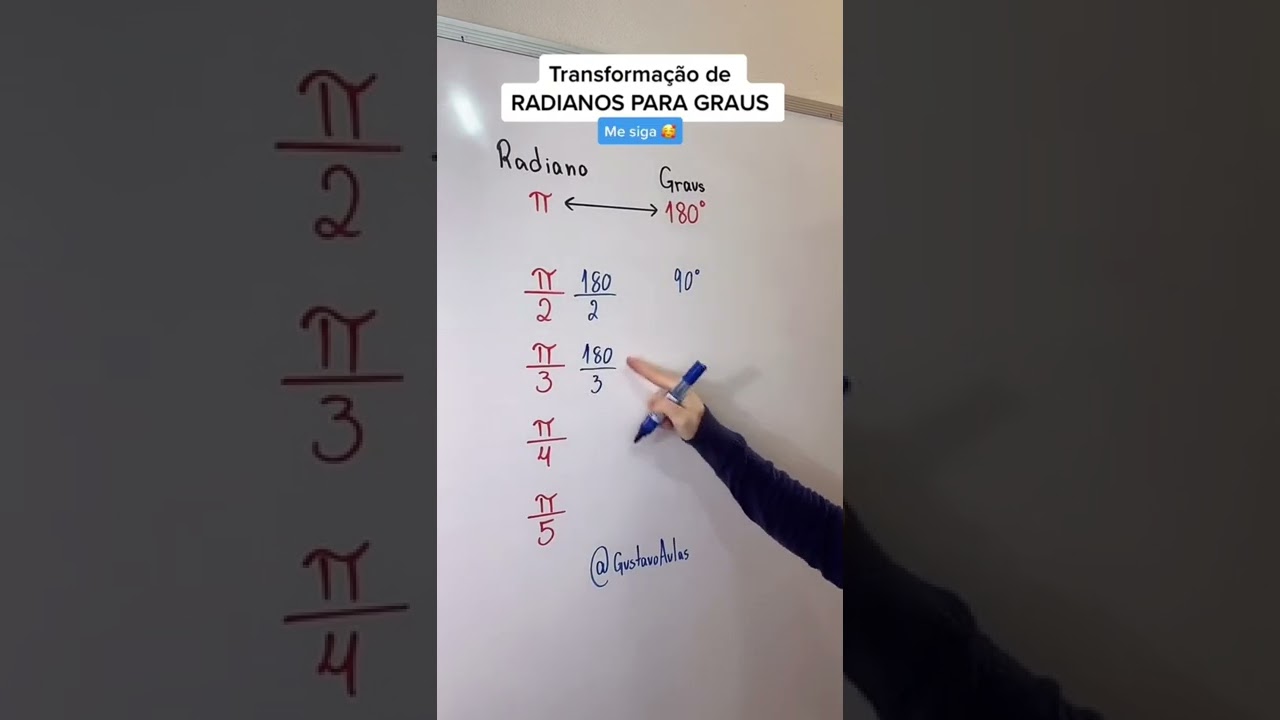 Transformação de
RADIANOS PARA GRAUS
Me siga 🥰
Radiano Graus
π ⟷ 180°
π/2 180/2 90°
π/3 180/3
π/4
π/5
@GustavoAulas
π/2
π/3
π/4